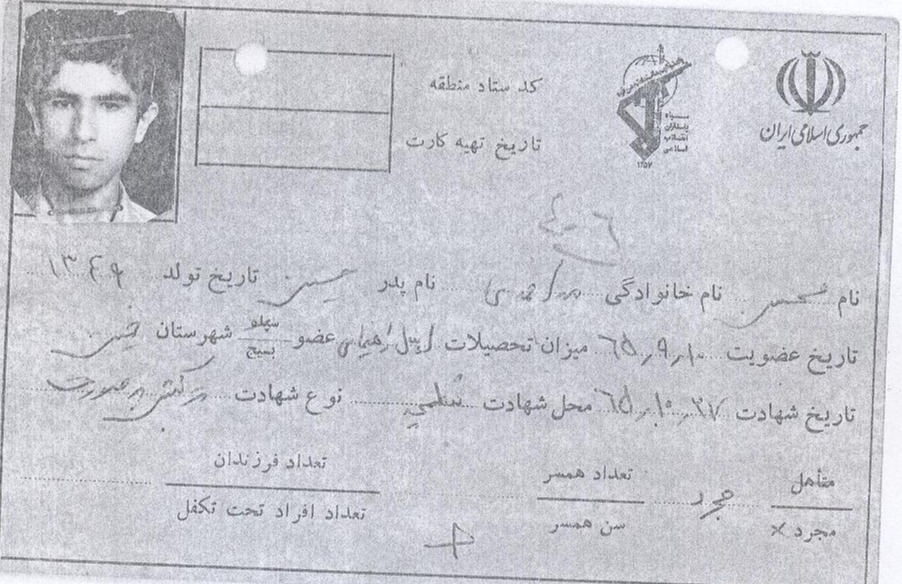 جمهوری اسلامی ایران
سپاه
پاسداران
انقلاب
اسلامی
۱۳۵۷
کد ستاد منطقه
تاریخ تهیه کارت
نام محسن نام خانوادگی نام پدر حسین تاریخ تولد ۱۳۴۹
تاریخ عضویت ۶۵٫۹٫۱۰ میزان تحصیلات اول راهنمایی عضو سپاه بسیج شهرستان
تاریخ شهادت ۶۵٫۱۰٫۲۷ محل شهادت شلمچه نوع شهادت ترکش به صورت
متأهل
مجرد × مجرد
تعداد همسر
سن همسر
تعداد فرزندان
تعداد افراد تحت تکفل